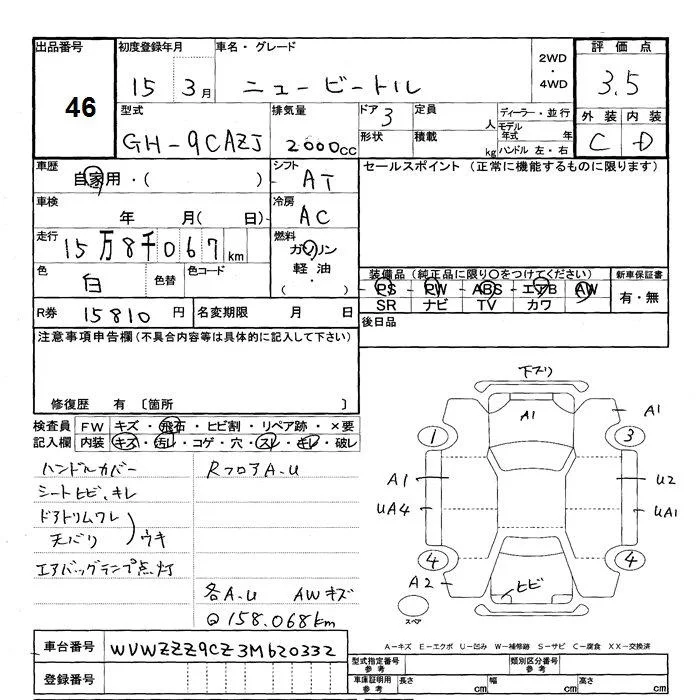 出品番号
46
初度登録年月
15 3月
車名・グレード
ニュービートル
2WD
・
4WD
評価点
3.5
型式
GH-9CAZJ
排気量
2000cc
ドア
3
形状
定員
人
積載
kg
ディーラー・並行
モデル年式 年
ハンドル 左・右
外装 内装
C D
車歴
自家用・( )
シフト
AT
セールスポイント (正常に機能するものに限ります)
車検
年 月( 日)
冷房
AC
走行
15万8千067km
燃料
ガソリン
軽油
( ・ )
色
白
色替
色コード
装備品 (純正品に限り○をつけてください)
PS - PW - ABS - エアB - AW
SR ナビ TV カワ
新車保証書
有・無
R券
15810円
名変期限 月 日
後日品
注意事項申告欄 (不具合内容等は具体的に記入して下さい)
修復歴 有 〔箇所 〕
検査員 FW キズ・飛石・ヒビ割・リペア跡・×要
記入欄 内装 キズ・汚レ・コゲ・穴・スレ・キレ・破レ
ハンドルカバー
シートヒビ、キレ
ドアトリムワレ
天バリ ウキ
エアバッグランプ点灯
RフロアA.U
各A.U AWキズ
@158.068km
下スリ
A1
A1
1
3
A1
U2
UA4
UA1
4
4
A2
ヒビ
スペア
車台番号
WVWZZZ9CZ3M620332
登録番号
A－キズ E－エクボ U－凹み W－補修跡 S－サビ C－腐食 XX－交換済
型式指定番号
参考
類別区分番号
参考
車庫証明用
参考
長さ cm
幅 cm
高さ cm